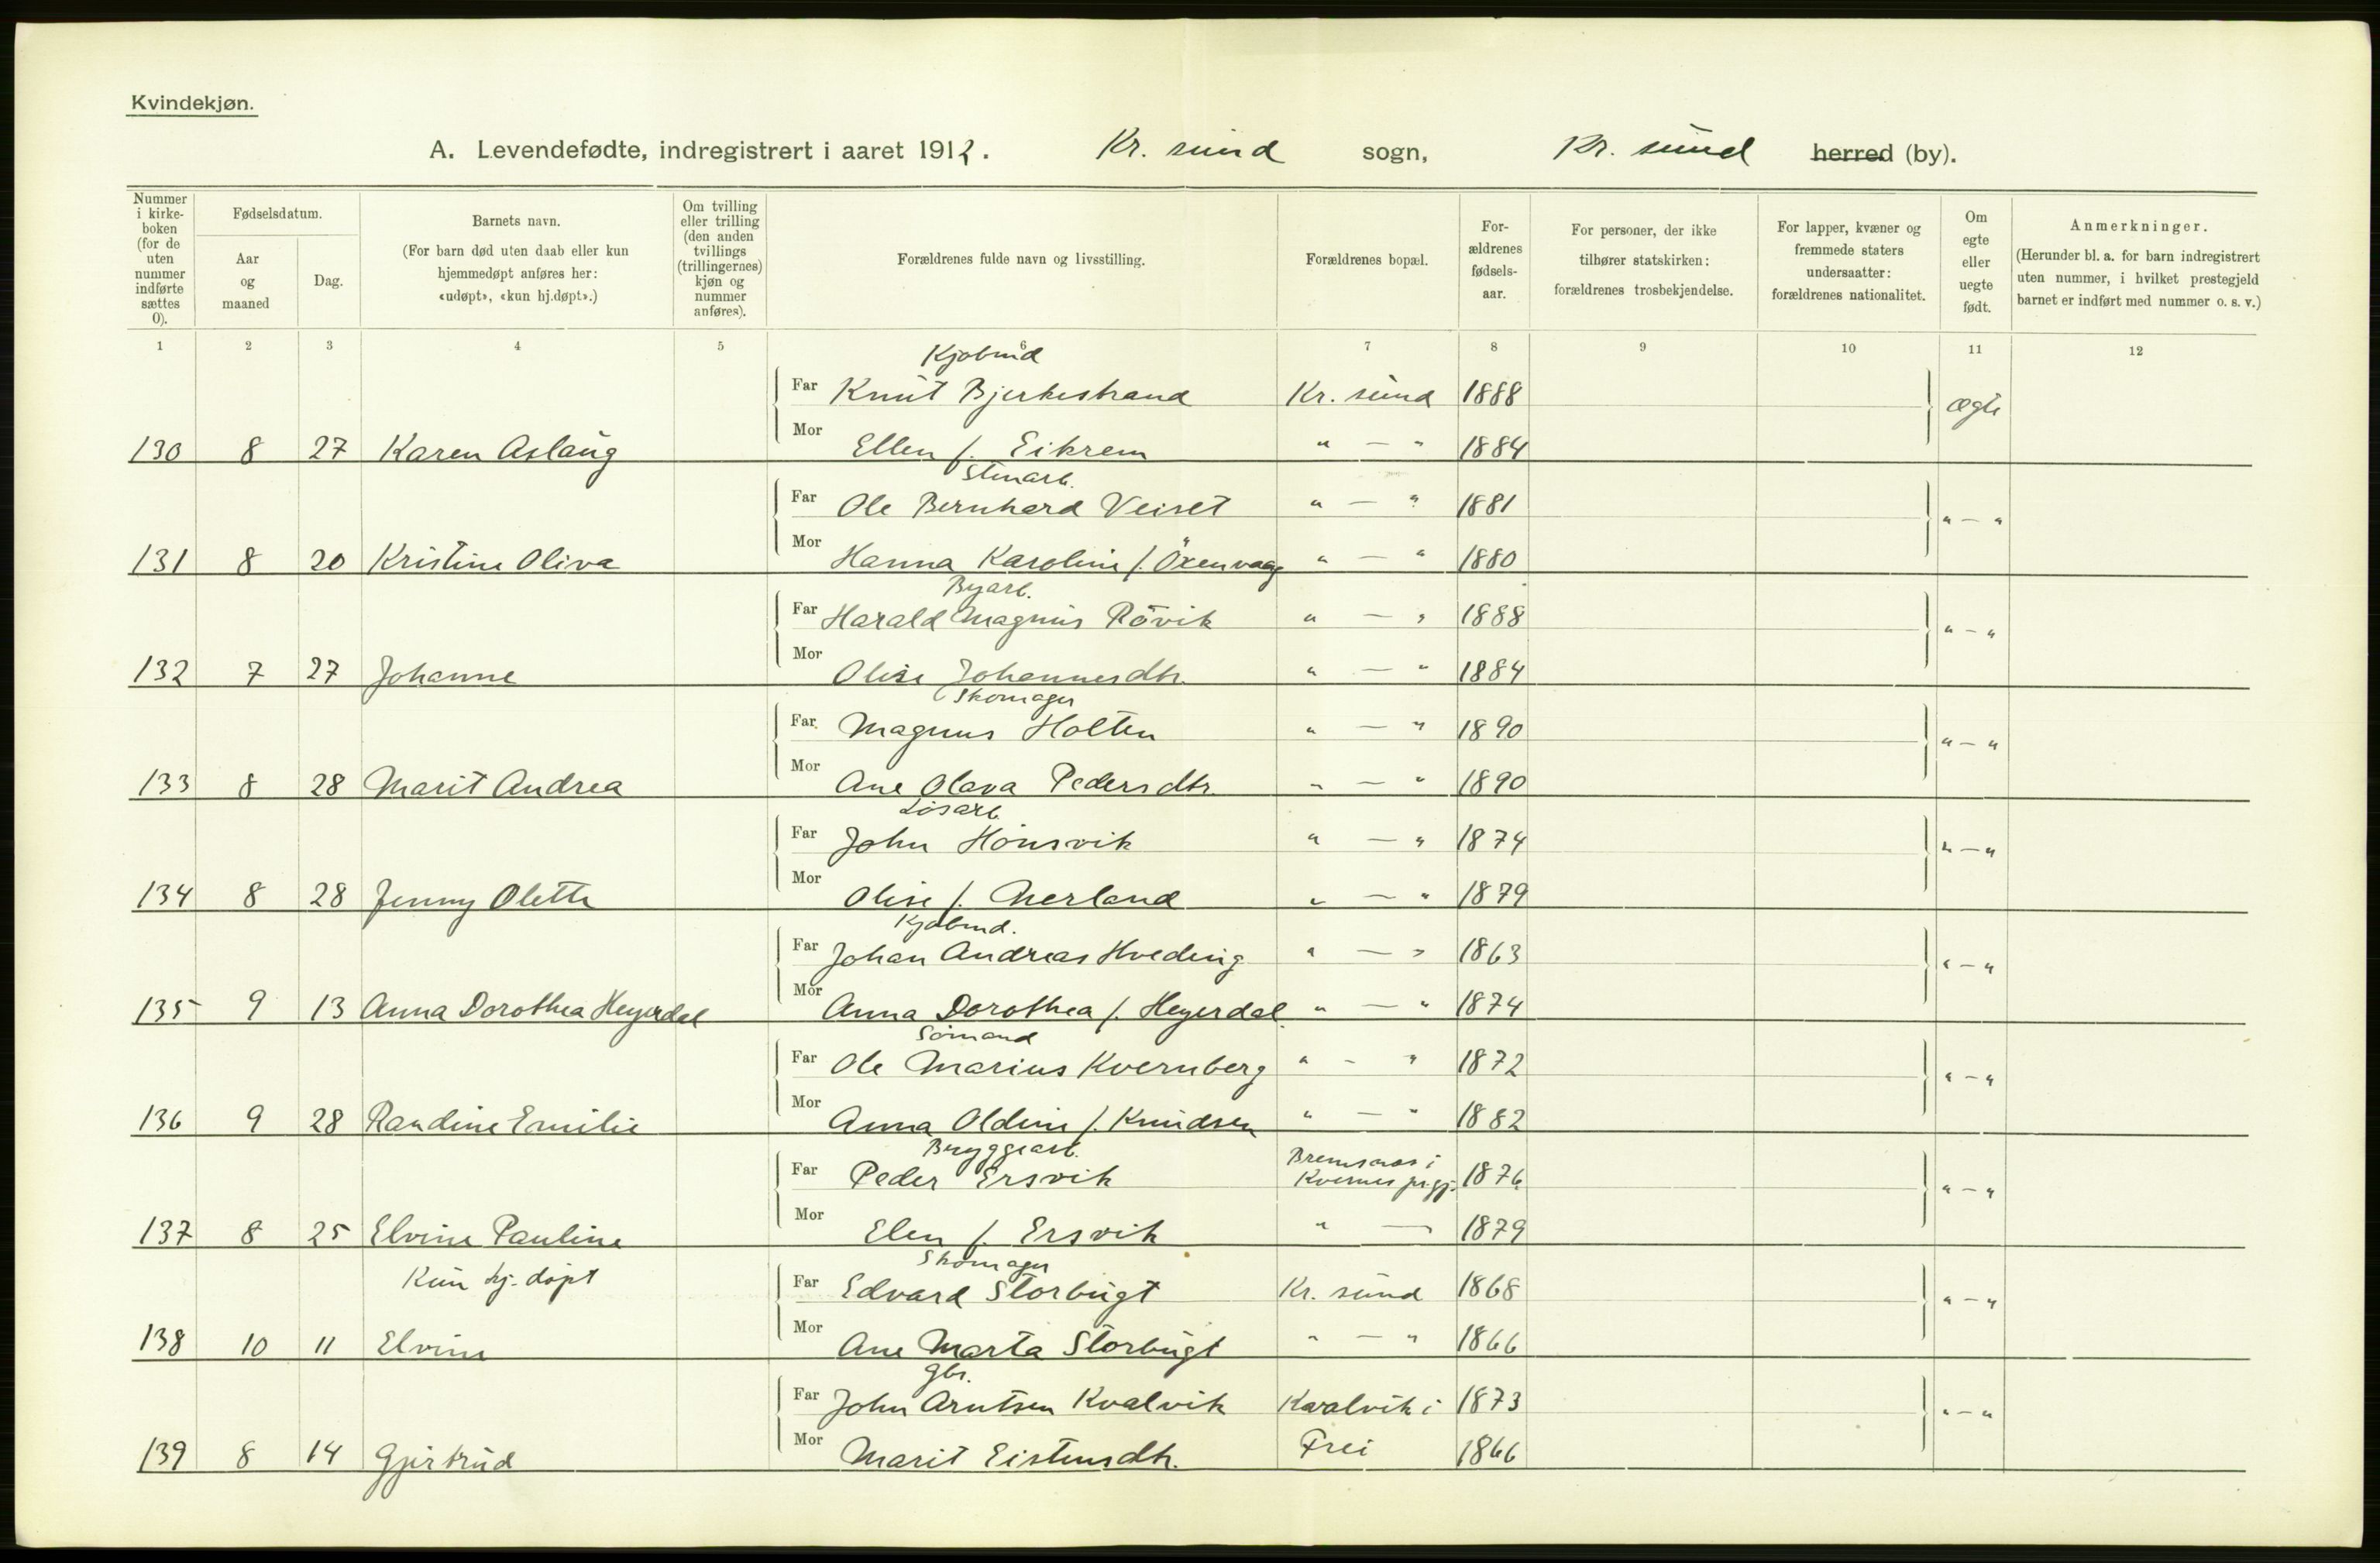 Kvindekjøn.
A. Levendefødte, indregistrert i aaret 1912. Kr. sund sogn, Kr. sund herred (by).
Nummer i kirke-boken (for de uten nummer indførte sættes 0).
Fødselsdatum.
Aar og maaned
Dag.
Barnets navn.
(For barn død uten daab eller kun hjemmedøpt anføres her: «udøpt», «kun hj.døpt».)
Om tvilling eller trilling (den anden tvillings (trillingernes) kjøn og nummer anføres).
Forældrenes fulde navn og livsstilling.
Forældrenes bopæl.
For-ældrenes fødsels-aar.
For personer, der ikke tilhører statskirken: forældrenes trosbekjendelse.
For lapper, kvæner og fremmede staters undersaatter: forældrenes nationalitet.
Om egte eller uegte født.
Anmerkninger.
(Herunder bl. a. for barn indregistrert uten nummer, i hvilket prestegjeld barnet er indført med nummer o. s. v.)
1 2 3 4 5 6 7 8 9 10 11 12
Kjøbmd
Far Knut Bjerkestrand Kr. sund 1888 ægte
130 8 27 Karen Aslaug Mor Ellen f. Eikrem " — " 1884
Stenarb.
Far Ole Bernhard Veiset " — " 1881 " — "
131 8 20 Kristine Oliva Mor Hanna Karoline f. Öxenvaag " — " 1880
Byarb.
Far Harald Magnus Rövik " — " 1888 " — "
132 7 27 Johanne Mor Olise Johannesdtr. " — " 1884
Skomager
Far Magnus Holten " — " 1890 " — "
133 8 28 Marit Andrea Mor Ane Olava Pedersdtr. " — " 1890
Løsarb.
Far John Hønsvik " — " 1874 " — "
134 8 28 Jenny Olette Mor Olise f. Nerland " — " 1879
Kjøbmd.
Far Johan Andreas Hveding " — " 1863 " — "
135 9 13 Anna Dorothea Heyerdal Mor Anna Dorothea f. Heyerdal. " — " 1874
Sømand
Far Ole Marius Kvernberg " - " 1872 " — "
136 9 28 Randine Emilie Mor Anna Oldine f. Knudsen " — " 1882
Bryggearb.
Far Peder Ersvik Bremsnes i Kvernes prgj. 1876 " — "
137 8 25 Elvine Pauline Mor Elen f. Ersvik " — 1879
Skomager
Kun hj. døpt Far Edvard Storbugt Kr. sund 1868 " — "
138 10 11 Elvine Mor Ane Marta Storbugt " — " 1866
Gbr.
Far John Arntsen Kvalvik Kvalvik i 1873 " — "
139 8 14 Gjertrud Mor Marit Eistensdtr. Frei 1866